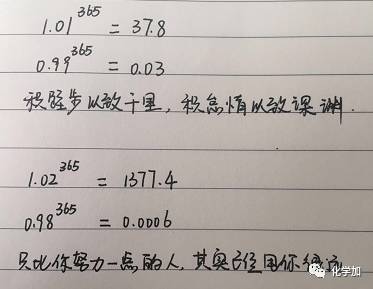 1.01^365 = 37.8
0.99^365 = 0.03
积跬步以致千里，积怠惰以致深渊.
1.02^365 = 1377.4
0.98^365 = 0.0006
只比你努力一点的人，其实已经甩你很远
化学加